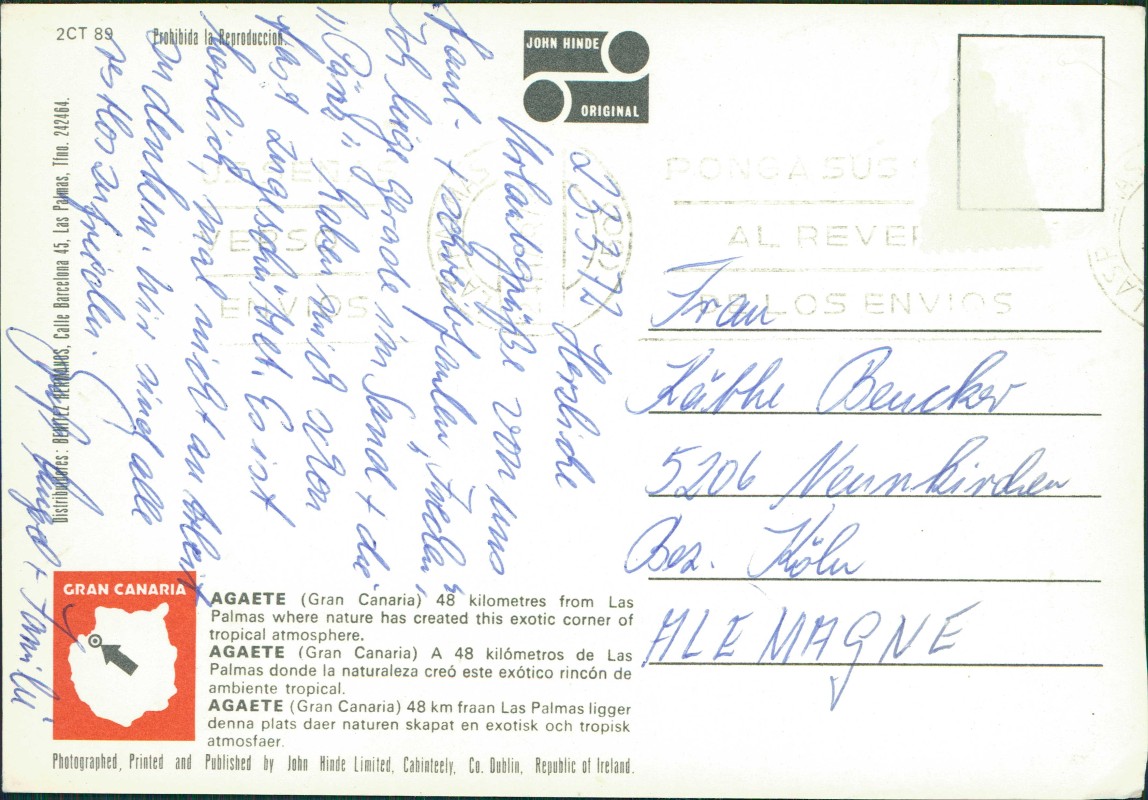 2CT 89
Prohibida la Reproduccion.
JOHN HINDE
ORIGINAL
PONGA SUS
AL REVE
DE LOS ENVIOS
VERSO
ENVIOS
23.3.77
Herzliche
Urlaubsgrüße von uns
Faul- +
Ich liege gerade im Sand + die
haben mich schon
fast zugeschüttet. Es ist
herrlich, mal nicht an Arbeit
zu denken. Wir sind alle
restlos zufrieden.
+ Familie
Frau
Käthe Bencker
5206 Neunkirchen
Bez. Köln
ALEMAGNE
Distribuidores: BENITEZ HERMANOS, Calle Barcelona 45, Las Palmas, Tfno. 242464.
GRAN CANARIA
AGAETE (Gran Canaria) 48 kilometres from Las
Palmas where nature has created this exotic corner of
tropical atmosphere.
AGAETE (Gran Canaria) A 48 kilómetros de Las
Palmas donde la naturaleza creó este exótico rincón de
ambiente tropical.
AGAETE (Gran Canaria) 48 km fraan Las Palmas ligger
denna plats daer naturen skapat en exotisk och tropisk
atmosfaer.
Photographed, Printed and Published by John Hinde Limited, Cabinteely, Co. Dublin, Republic of Ireland.